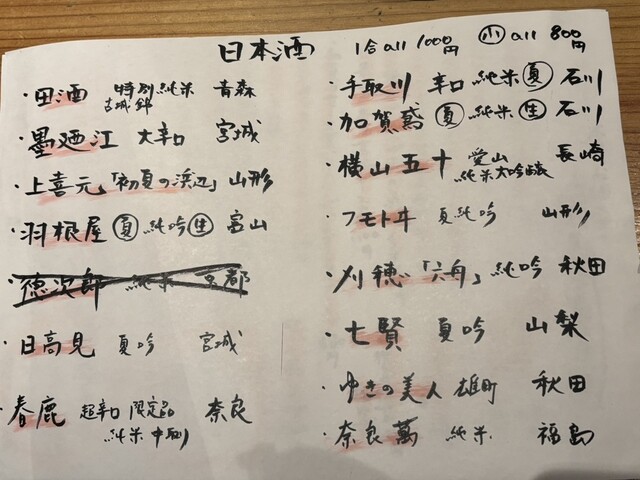 日本酒 1合all 1000円 小 all 800円
・田酒 特別純米 古城錦 青森
・墨廼江 大辛口 宮城
・上喜元「初夏の浜辺」山形
・羽根屋 夏 純吟 生 富山
・徳次郎 純米 京都
・日高見 夏吟 宮城
・春鹿 超辛口 限定品 奈良
純米 中取り
・手取川 辛口 純米 夏 石川
・加賀鳶 夏 純米 生 石川
・横山五十 愛山 長崎
純米大吟醸
・フモトヰ 夏純吟 山形
・刈穂「六舟」純吟 秋田
・七賢 夏吟 山梨
・ゆきの美人 雄町 秋田
・奈良萬 純米 福島